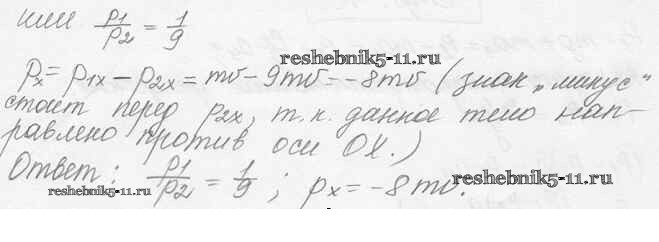 или p1/p2 = 1/9
reshebnik5-11.ru
px = p1x - p2x = mv - 9mv = -8mv (знак „минус“
стоит перед p2x, т.к. данное тело нап-
равлено против оси OX.)
Ответ: p1/p2 = 1/9; px = -8mv.
reshebnik5-11.ru
reshebnik5-11.ru